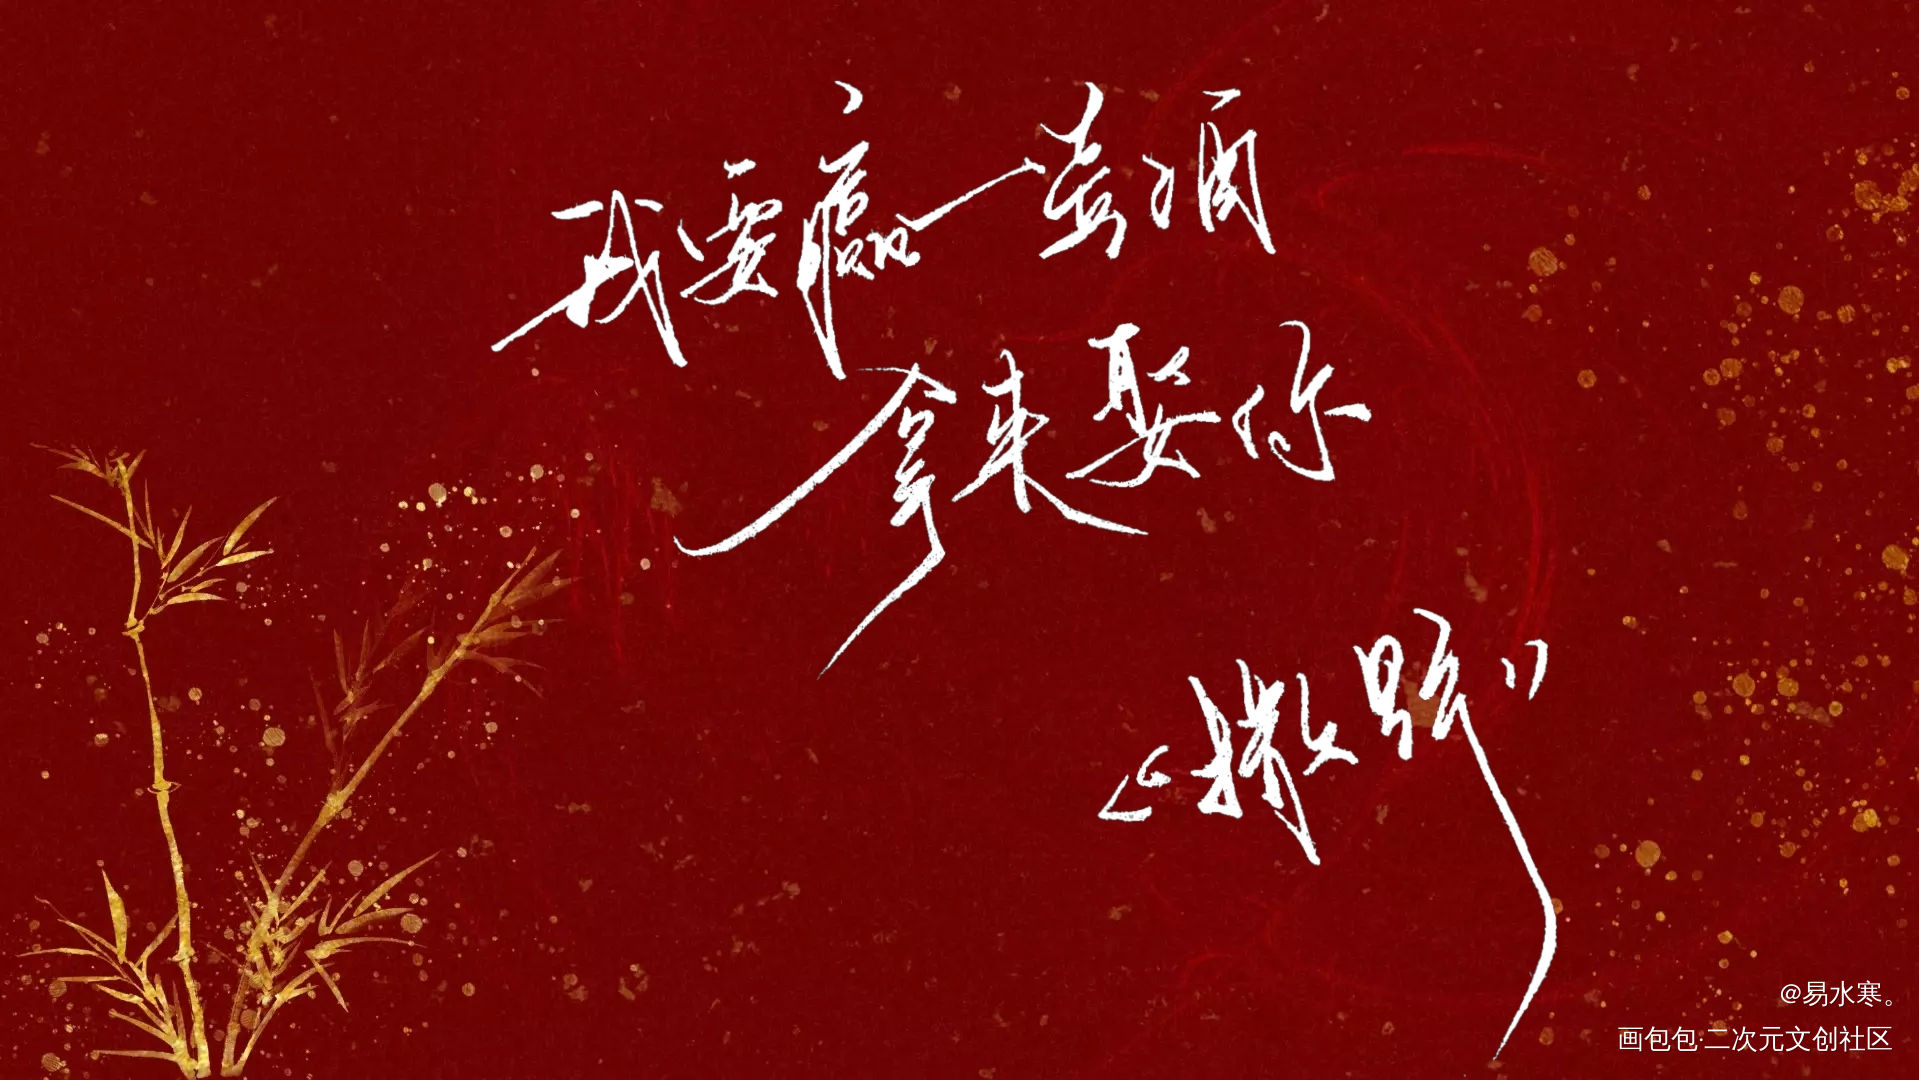 我要赢一壶酒
拿来娶你
《撒野》
@易水寒。
画包包·二次元文创社区